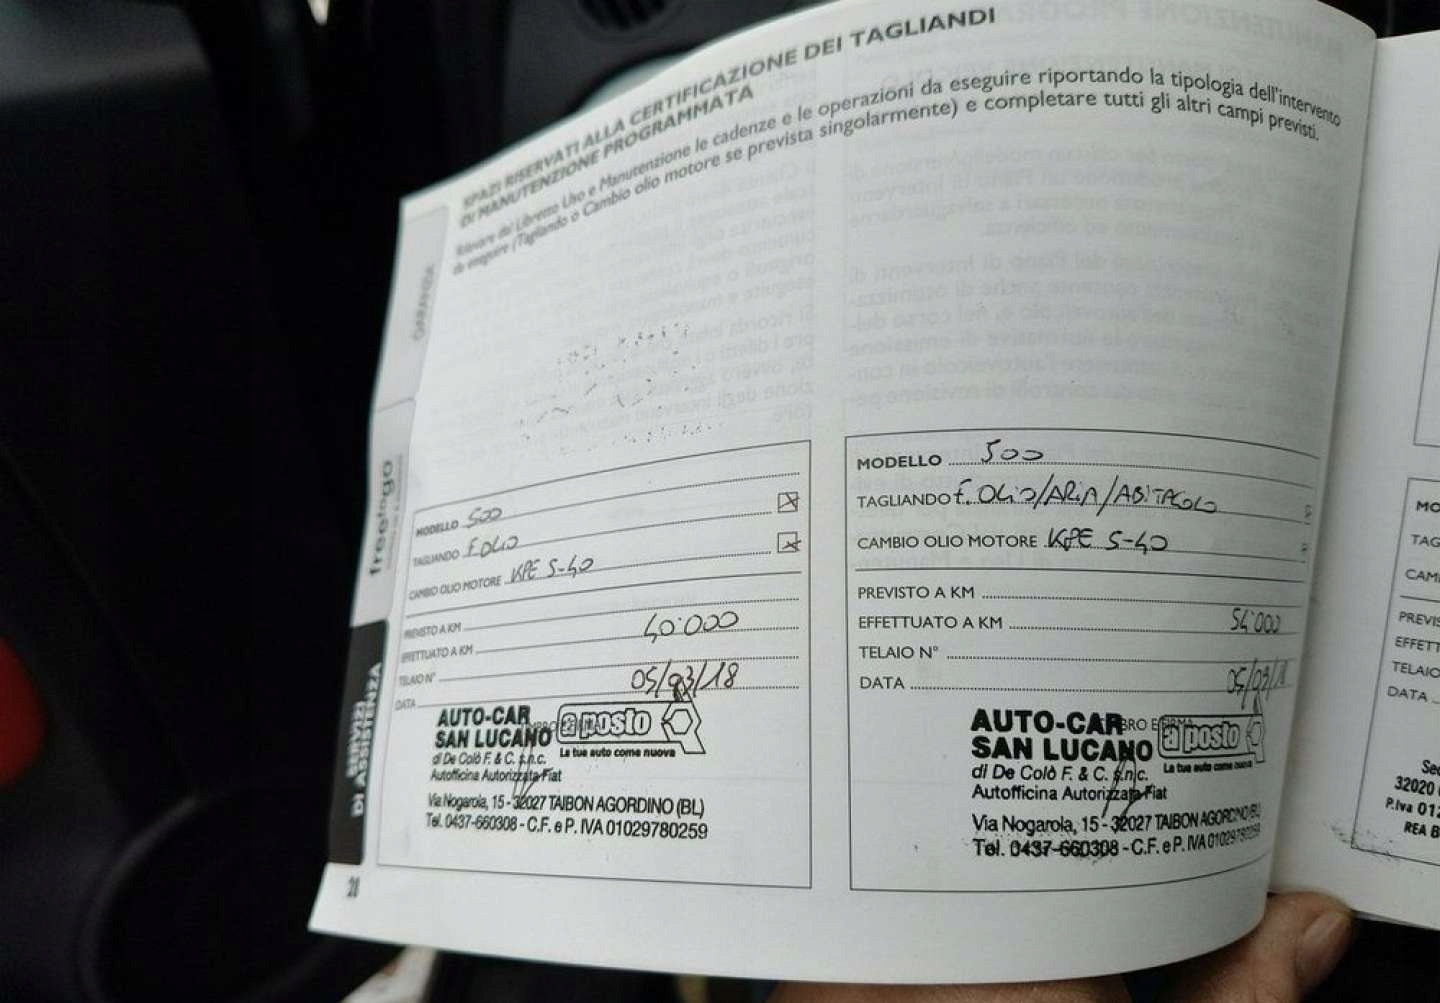 SPAZI RISERVATI ALLA CERTIFICAZIONE DEI TAGLIANDI
DI MANUTENZIONE PROGRAMMATA
Rilevare dal Libretto Uso e Manutenzione le cadenze e le operazioni da eseguire riportando la tipologia dell'intervento
da eseguire (Tagliando o Cambio olio motore se prevista singolarmente) e completare tutti gli altri campi previsti.
GARANZIA
freetogo
SERVIZI
DI ASSISTENZA
MODELLO 500
TAGLIANDO F. OLIO
CAMBIO OLIO MOTORE KPE 5-40
PREVISTO A KM
EFFETTUATO A KM 40.000
TELAIO N°
DATA 05/03/18
AUTO-CAR
SAN LUCANO
a posto
La tua auto come nuova
di De Colò F. & C. s.n.c.
Autofficina Autorizzata Fiat
Via Nogarola, 15 - 32027 TAIBON AGORDINO (BL)
Tel. 0437-660308 - C.F. e P. IVA 01029780259
MODELLO 500
TAGLIANDO F. OLIO/ARIA/ABITACOLO
CAMBIO OLIO MOTORE KPE 5-40
PREVISTO A KM
EFFETTUATO A KM 54.000
TELAIO N°
DATA
TIMBRO E FIRMA
AUTO-CAR
SAN LUCANO
a posto
La tua auto come nuova
di De Colò F. & C. s.n.c.
Autofficina Autorizzata Fiat
Via Nogarola, 15 - 32027 TAIBON AGORDINO (BL)
Tel. 0437-660308 - C.F. e P. IVA 01029780259
28
MO
TAG
CAM
PREVIS
EFFETT
TELAIO
DATA
Sed
32020
P.Iva 012
REA B